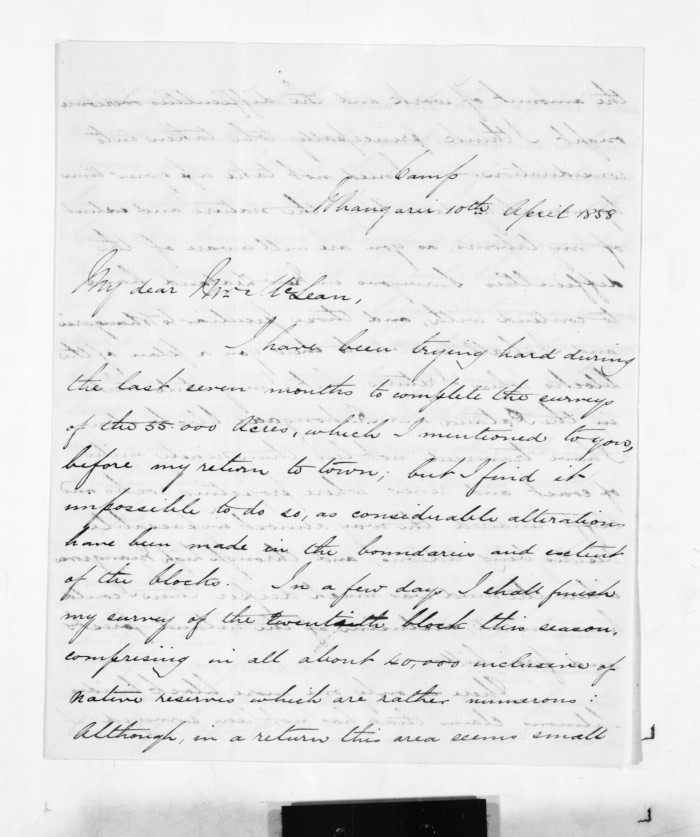 Camp
Whangarei 10th April 1858
My dear Mr. McLean,
I have been trying hard during
the last seven months to complete the surveys
of the 55.000 Acres, which I mentioned to you,
before my return to town; but I find it
impossible to do so, as considerable alterations
have been made in the boundaries and extent
of the blocks. In a few days I shall finish
my survey of the twentieth block this season,
comprising in all about 40,000 inclusive of
native reserves which are rather numerous:
Although, in a return this area seems small